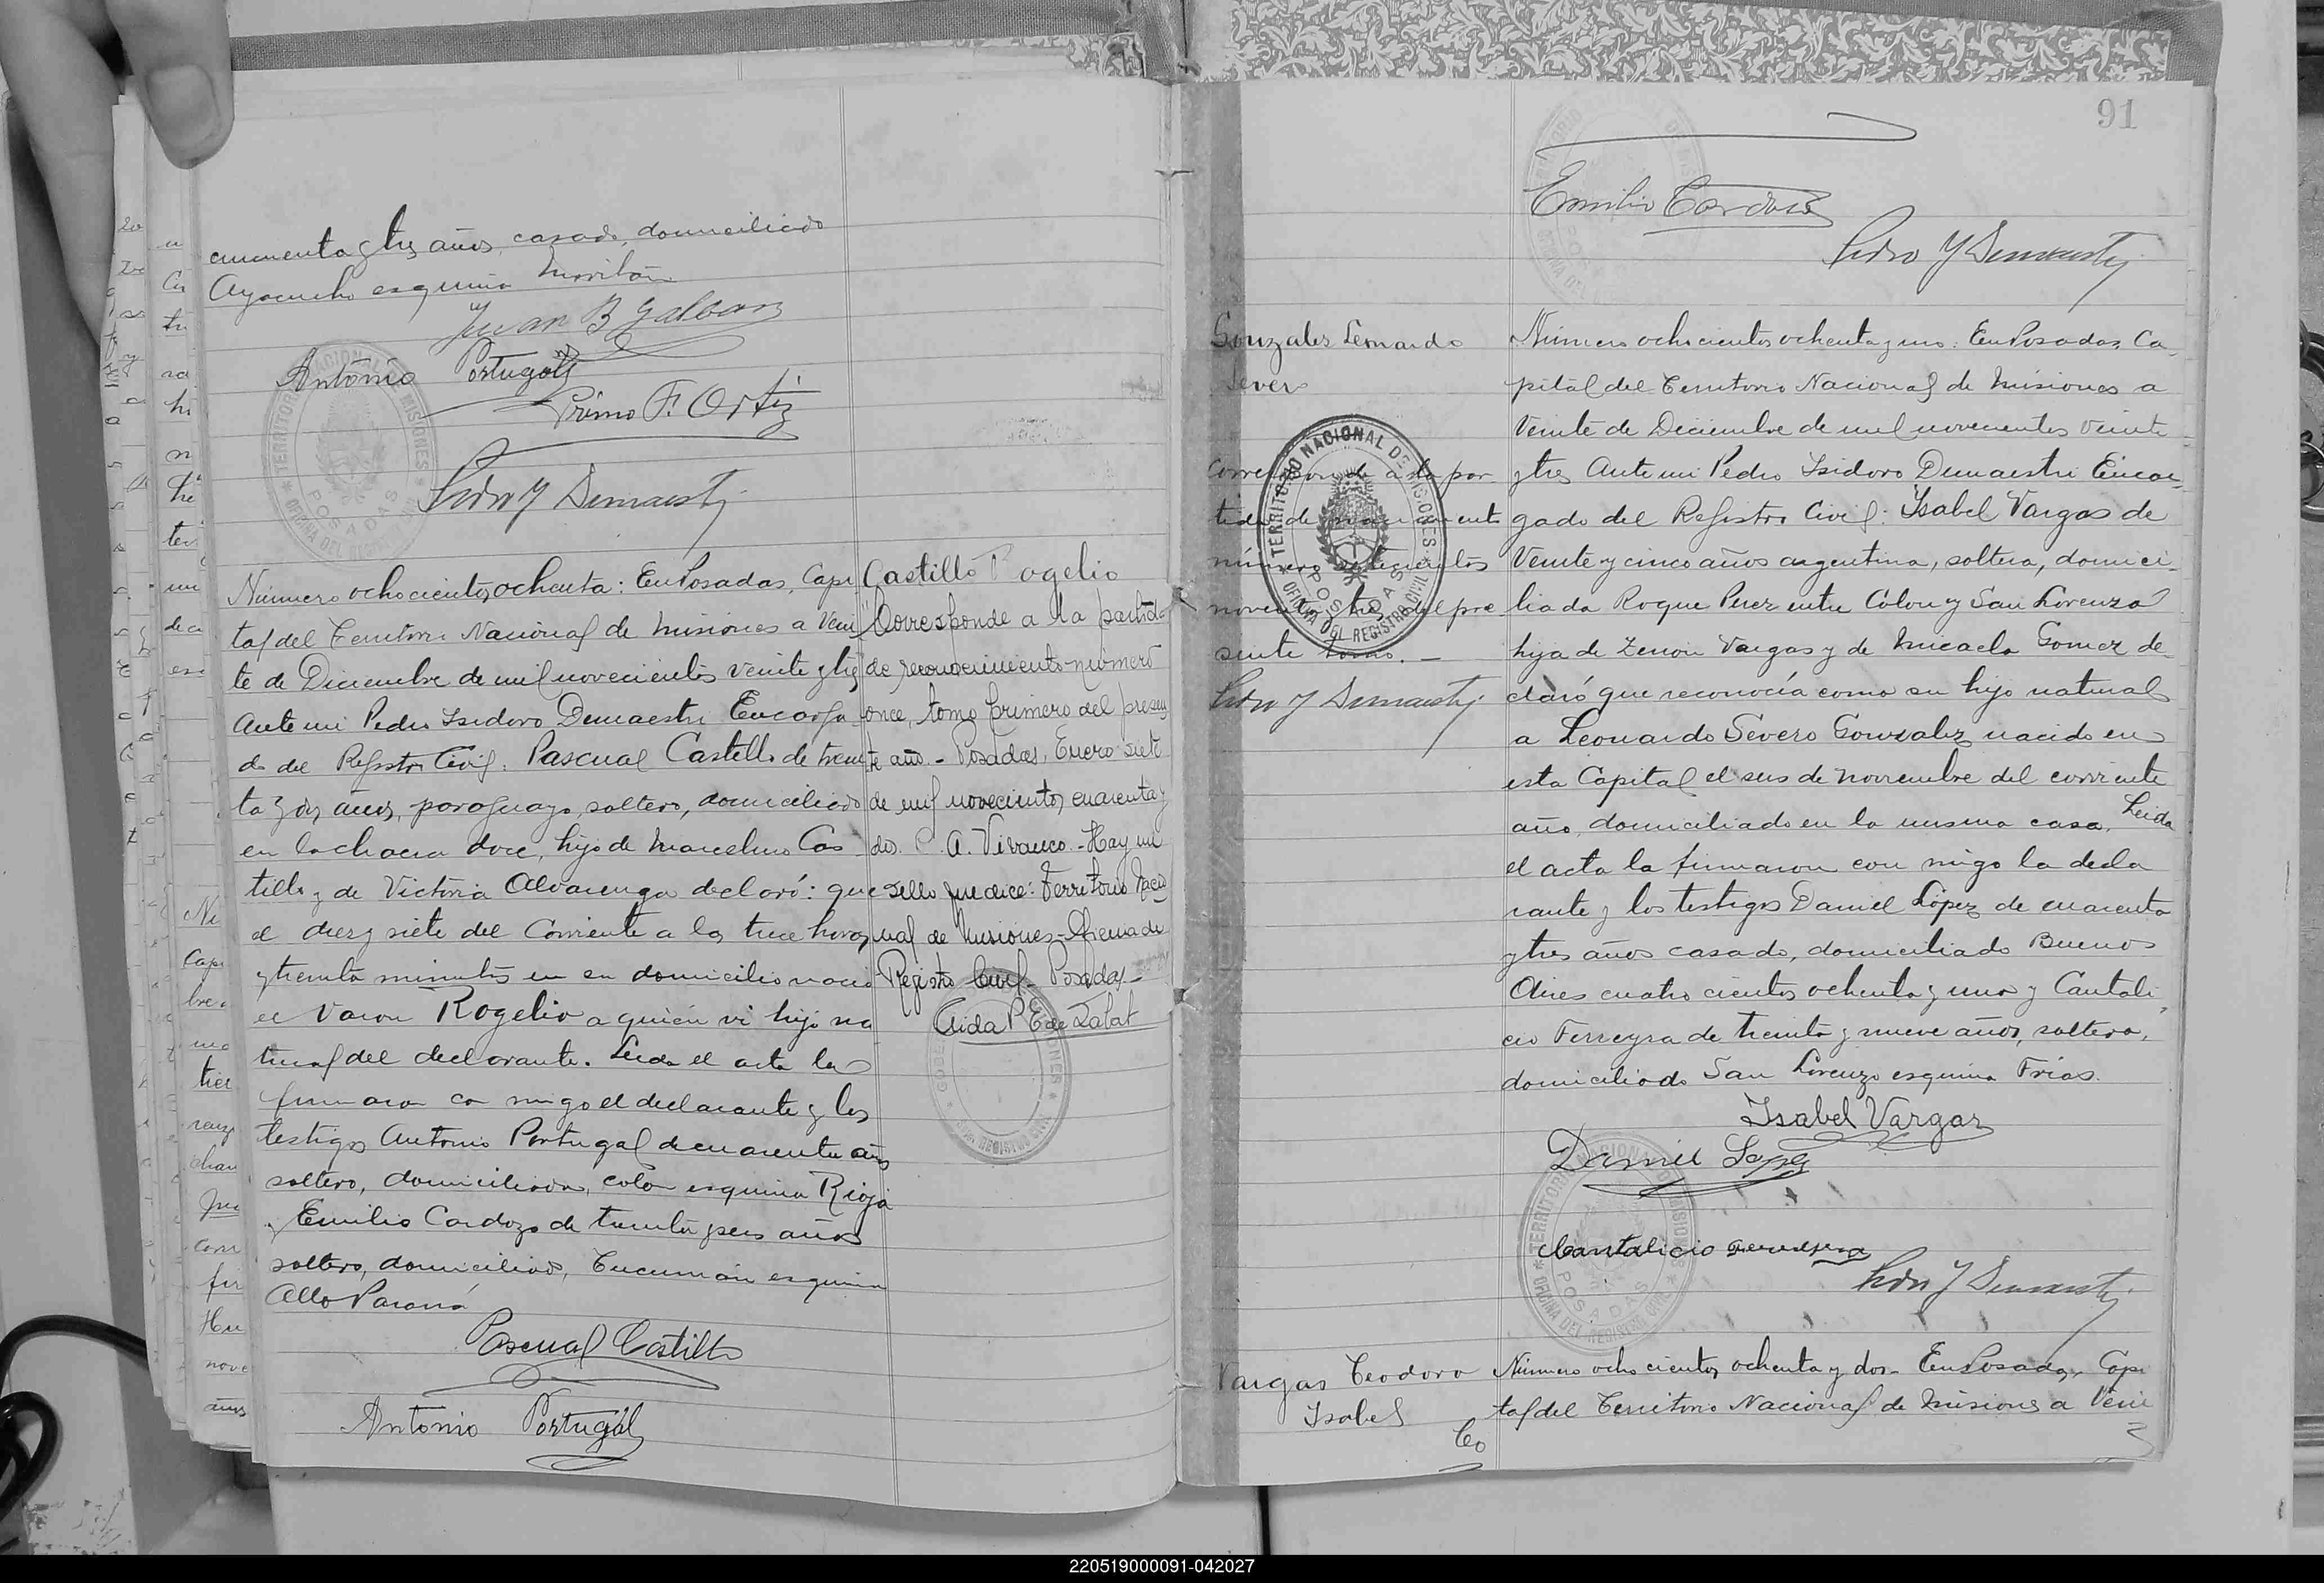 cuarenta y tres años, casado, domiciliado
Ayacucho esquina
Juan B Galban
Antonio Portugal
Primo F. Ortiz
Pedro Y Demaestri
Número ochocientos ochenta: En Posadas, Capi
tal del Territorio Nacional de Misiones a Vein
te de Diciembre de mil novecientos veinte y tres
Ante mi Pedro Isidoro Demaestri Encarga
do del Registro Civil: Pascual Castillo de trein
ta y dos años, paraguayo, soltero, domiciliado
en la chacra doce, hijo de Marcelino Cas
tillo y de Victoria Alvarenga declaró: que
el diez y siete del Corriente a las trece horas
y treinta minutos en su domicilio nació
el Varon Rogelio a quien vi hijo na
tural del declarante. Leida el acta la
firmaron con migo el declarante y los
testigos Antonio Portugal de cuarenta años
soltero, domiciliado, Colon esquina Rioja
y Emilio Cardozo de treinta y seis años
soltero, domiciliado, Tucuman esquina
Alto Paraná
Pascual Castillo
Antonio Portugal
Castillo Rogelio
Corresponde a la partida
de reconocimiento número
once, tomo primero del presen
te año.- Posadas, Enero siete
de mil novecientos cuarenta y
dos. C. A. Vivanco.- Hay un
sello que dice: Territorio Nacio
nal de Misiones- Oficina de
Registro Civil- Posadas-
Aida P E de Zabat
91
Emilio Cardozo
Pedro Y Demaestri
Gonzales Leonardo
Severo
Corresponde a la par
tida de nacimiento
número setecientos
noventa y tres del pre
sente tomo. -
Pedro Y Demaestri
TERRITORIO NACIONAL DE MISIONES
OFICINA DEL REGISTRO CIVIL
POSADAS
Número ochocientos ochenta y uno: En Posadas, Ca-
pital del Territorio Nacional de Misiones a
Veinte de Diciembre de mil novecientos veinte
y tres Ante mi Pedro Isidoro Demaestri Encar-
gado del Registro Civil: Isabel Vargas de
Veinte y cinco años argentina, soltera, domici-
liada Roque Perez entre Colon y San Lorenzo
hija de Zenon Vargas y de Micaela Gomez de-
claró que reconocía como su hijo natural
a Leonardo Severo Gonzalez nacido en
esta Capital el seis de noviembre del corriente
año, domiciliado en la misma casa. Leida
el acta la firmaron con migo la decla
rante y los testigos Daniel López de cuarenta
y tres años casado, domiciliado Buenos
Aires cuatro cientos ochenta y uno y Cantali
cio Ferreyra de treinta y nueve años, soltero,
domiciliado San Lorenzo esquina Frias.
Isabel Vargas
Daniel Lopez
Cantalicio Ferreyra
Pedro Y Demaestri
Vargas Teodoro
Isabel
Número ocho cientos ochenta y dos- En Posadas, Capi
tal del Territorio Nacional de Misiones a Vein
220519000091-042027